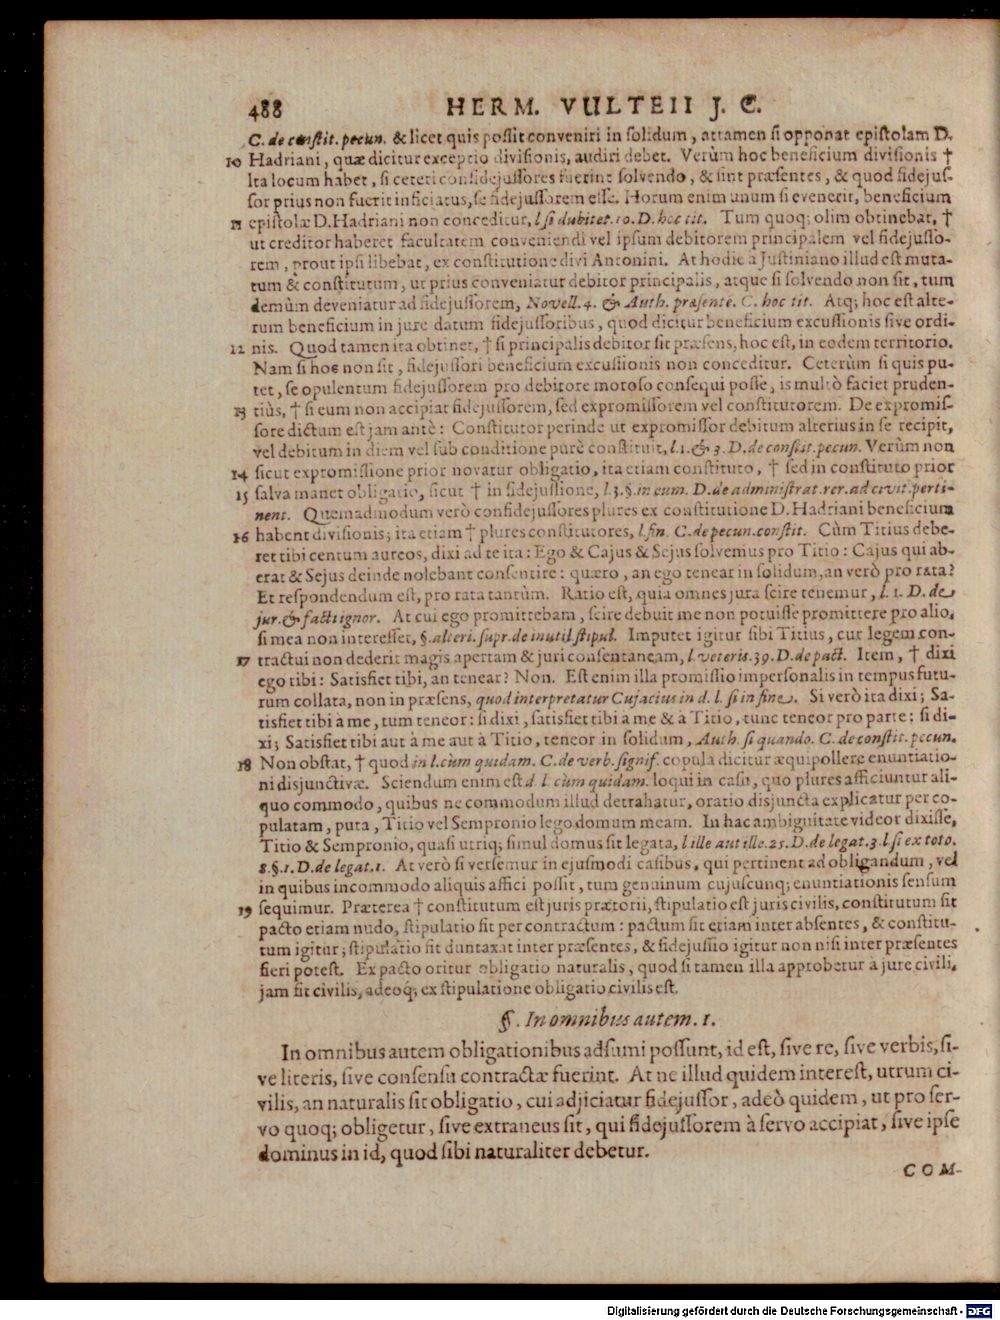 488 HERM. VULTEII J. C.
C. de constit. pecun. & licet quis possit conveniri in solidum, attamen si opponat epistolam D.
10 Hadriani, quæ dicitur exceptio divisionis, audiri debet. Verùm hoc beneficium divisionis †
Ita locum habet, si ceteri confidejussores fuerint solvendo, & sint præsentes, & quod fidejus-
sor prius non fuerit inficiatus, se fidejussorem esse. Horum enim unum si evenerit, beneficium
11 epistolæ D. Hadriani non conceditur, l. si dubitet. 10. D. hoc tit. Tum quoq; olim obtinebat, †
ut creditor haberet facultatem conveniendi vel ipsum debitorem principalem vel fidejusso-
rem, prout ipsi libebat, ex constitutione divi Antonini. At hodie à Justiniano illud est muta-
tum & constitutum, ut prius conveniatur debitor principalis, atque si solvendo non sit, tum
demùm deveniatur ad fidejussorem, Novell. 4. & Auth. præsente. C. hoc tit. Atq; hoc est alte-
rum beneficium in jure datum fidejussoribus, quod dicitur beneficium excussionis sive ordi-
12 nis. Quod tamen ita obtinet, † si principalis debitor sit præsens, hoc est, in eodem territorio.
Nam si hoc non sit, fidejussori beneficium excussionis non conceditur. Ceterùm si quis pu-
tet, se opulentum fidejussorem pro debitore moroso consequi posse, is multò faciet pruden-
13 tiùs, † si eum non accipiat fidejussorem, sed expromissorem vel constitutorem. De expromis-
sore dictum est jam antè: Constitutor perinde ut expromissor debitum alterius in se recipit,
vel debitum in diem vel sub conditione purè constituit, l. 1. & 3. D. de constit. pecun. Verùm non
14 sicut expromissione prior novatur obligatio, ita etiam constituto, † sed in constituto prior
15 salva manet obligatio, sicut † in fidejussione, l. 3. §. in eum. D. de administrat. rer. ad civit. perti-
nent. Quemadmodum verò confidejussores plures ex constitutione D. Hadriani beneficium
16 habent divisionis; ita etiam † plures constitutores, l. fin. C. de pecun. constit. Cùm Titius debe-
ret tibi centum aureos, dixi ad te ita: Ego & Cajus & Sejus solvemus pro Titio: Cajus qui ab-
erat & Sejus deinde nolebant consentire: quæro, an ego tenear in solidum, an verò pro rata?
Et respondendum est, pro rata tantùm. Ratio est, quia omnes jura scire tenemur, l. 1. D. de
jur. & facti ignor. At cui ego promittebam, scire debuit me non potuisse promittere pro alio,
si mea non interesset, §. alteri. supr. de inutil stipul. Imputet igitur sibi Titius, cur legem con-
17 tractui non dederit magis apertam & juri consentaneam, l. veteris. 39. D. de pact. Item, † dixi
ego tibi: Satisfiet tibi, an tenear? Non. Est enim illa promissio impersonalis in tempus futu-
rum collata, non in præsens, quod interpretatur Cujacius in d. l. si in fine. Si verò ita dixi; Sa-
tisfiet tibi a me, tum teneor: si dixi, satisfiet tibi à me & à Titio, tunc teneor pro parte: si di-
xi; Satisfiet tibi aut à me aut à Titio, teneor in solidum, Auth. si quando. C. de constit. pecun.
18 Non obstat, † quod in l. cùm quidam. C. de verb. signif. copula dicitur æquipollere enuntiatio-
ni disjunctivæ. Sciendum enim est d. l. cùm quidam. loqui in casu, quo plures afficiuntur ali-
quo commodo, quibus ne commodum illud detrahatur, oratio disjuncta explicatur per co-
pulatam, puta, Titio vel Sempronio lego domum meam. In hac ambiguitate videor dixisse,
Titio & Sempronio, quasi utriq; simul domus sit legata, l. ille aut ille. 25. D. de legat. 3. l. si ex toto.
8. §. 1. D. de legat. 1. At verò si versemur in ejusmodi casibus, qui pertinent ad obligandum, vel
in quibus incommodo aliquis affici possit, tum genuinum cujuscunq; enuntiationis sensum
19 sequimur. Præterea † constitutum est juris prætorii, stipulatio est juris civilis, constitutum fit
pacto etiam nudo, stipulatio fit per contractum: pactum fit etiam inter absentes, & constitu-
tum igitur; stipulatio fit duntaxat inter præsentes, & fidejussio igitur non nisi inter præsentes
fieri potest. Ex pacto oritur obligatio naturalis, quod si tamen illa approbetur à jure civili,
jam fit civilis, adeoq; ex stipulatione obligatio civilis est.
§. In omnibus autem. 1.
In omnibus autem obligationibus adsumi possunt, id est, sive re, sive verbis, si-
ve literis, sive consensu contractæ fuerint. At ne illud quidem interest, utrum ci-
vilis, an naturalis sit obligatio, cui adjiciatur fidejussor, adeò quidem, ut pro ser-
vo quoq; obligetur, sive extraneus sit, qui fidejussorem à servo accipiat, sive ipse
dominus in id, quod sibi naturaliter debetur.
COM-
Digitalisierung gefördert durch die Deutsche Forschungsgemeinschaft - DFG